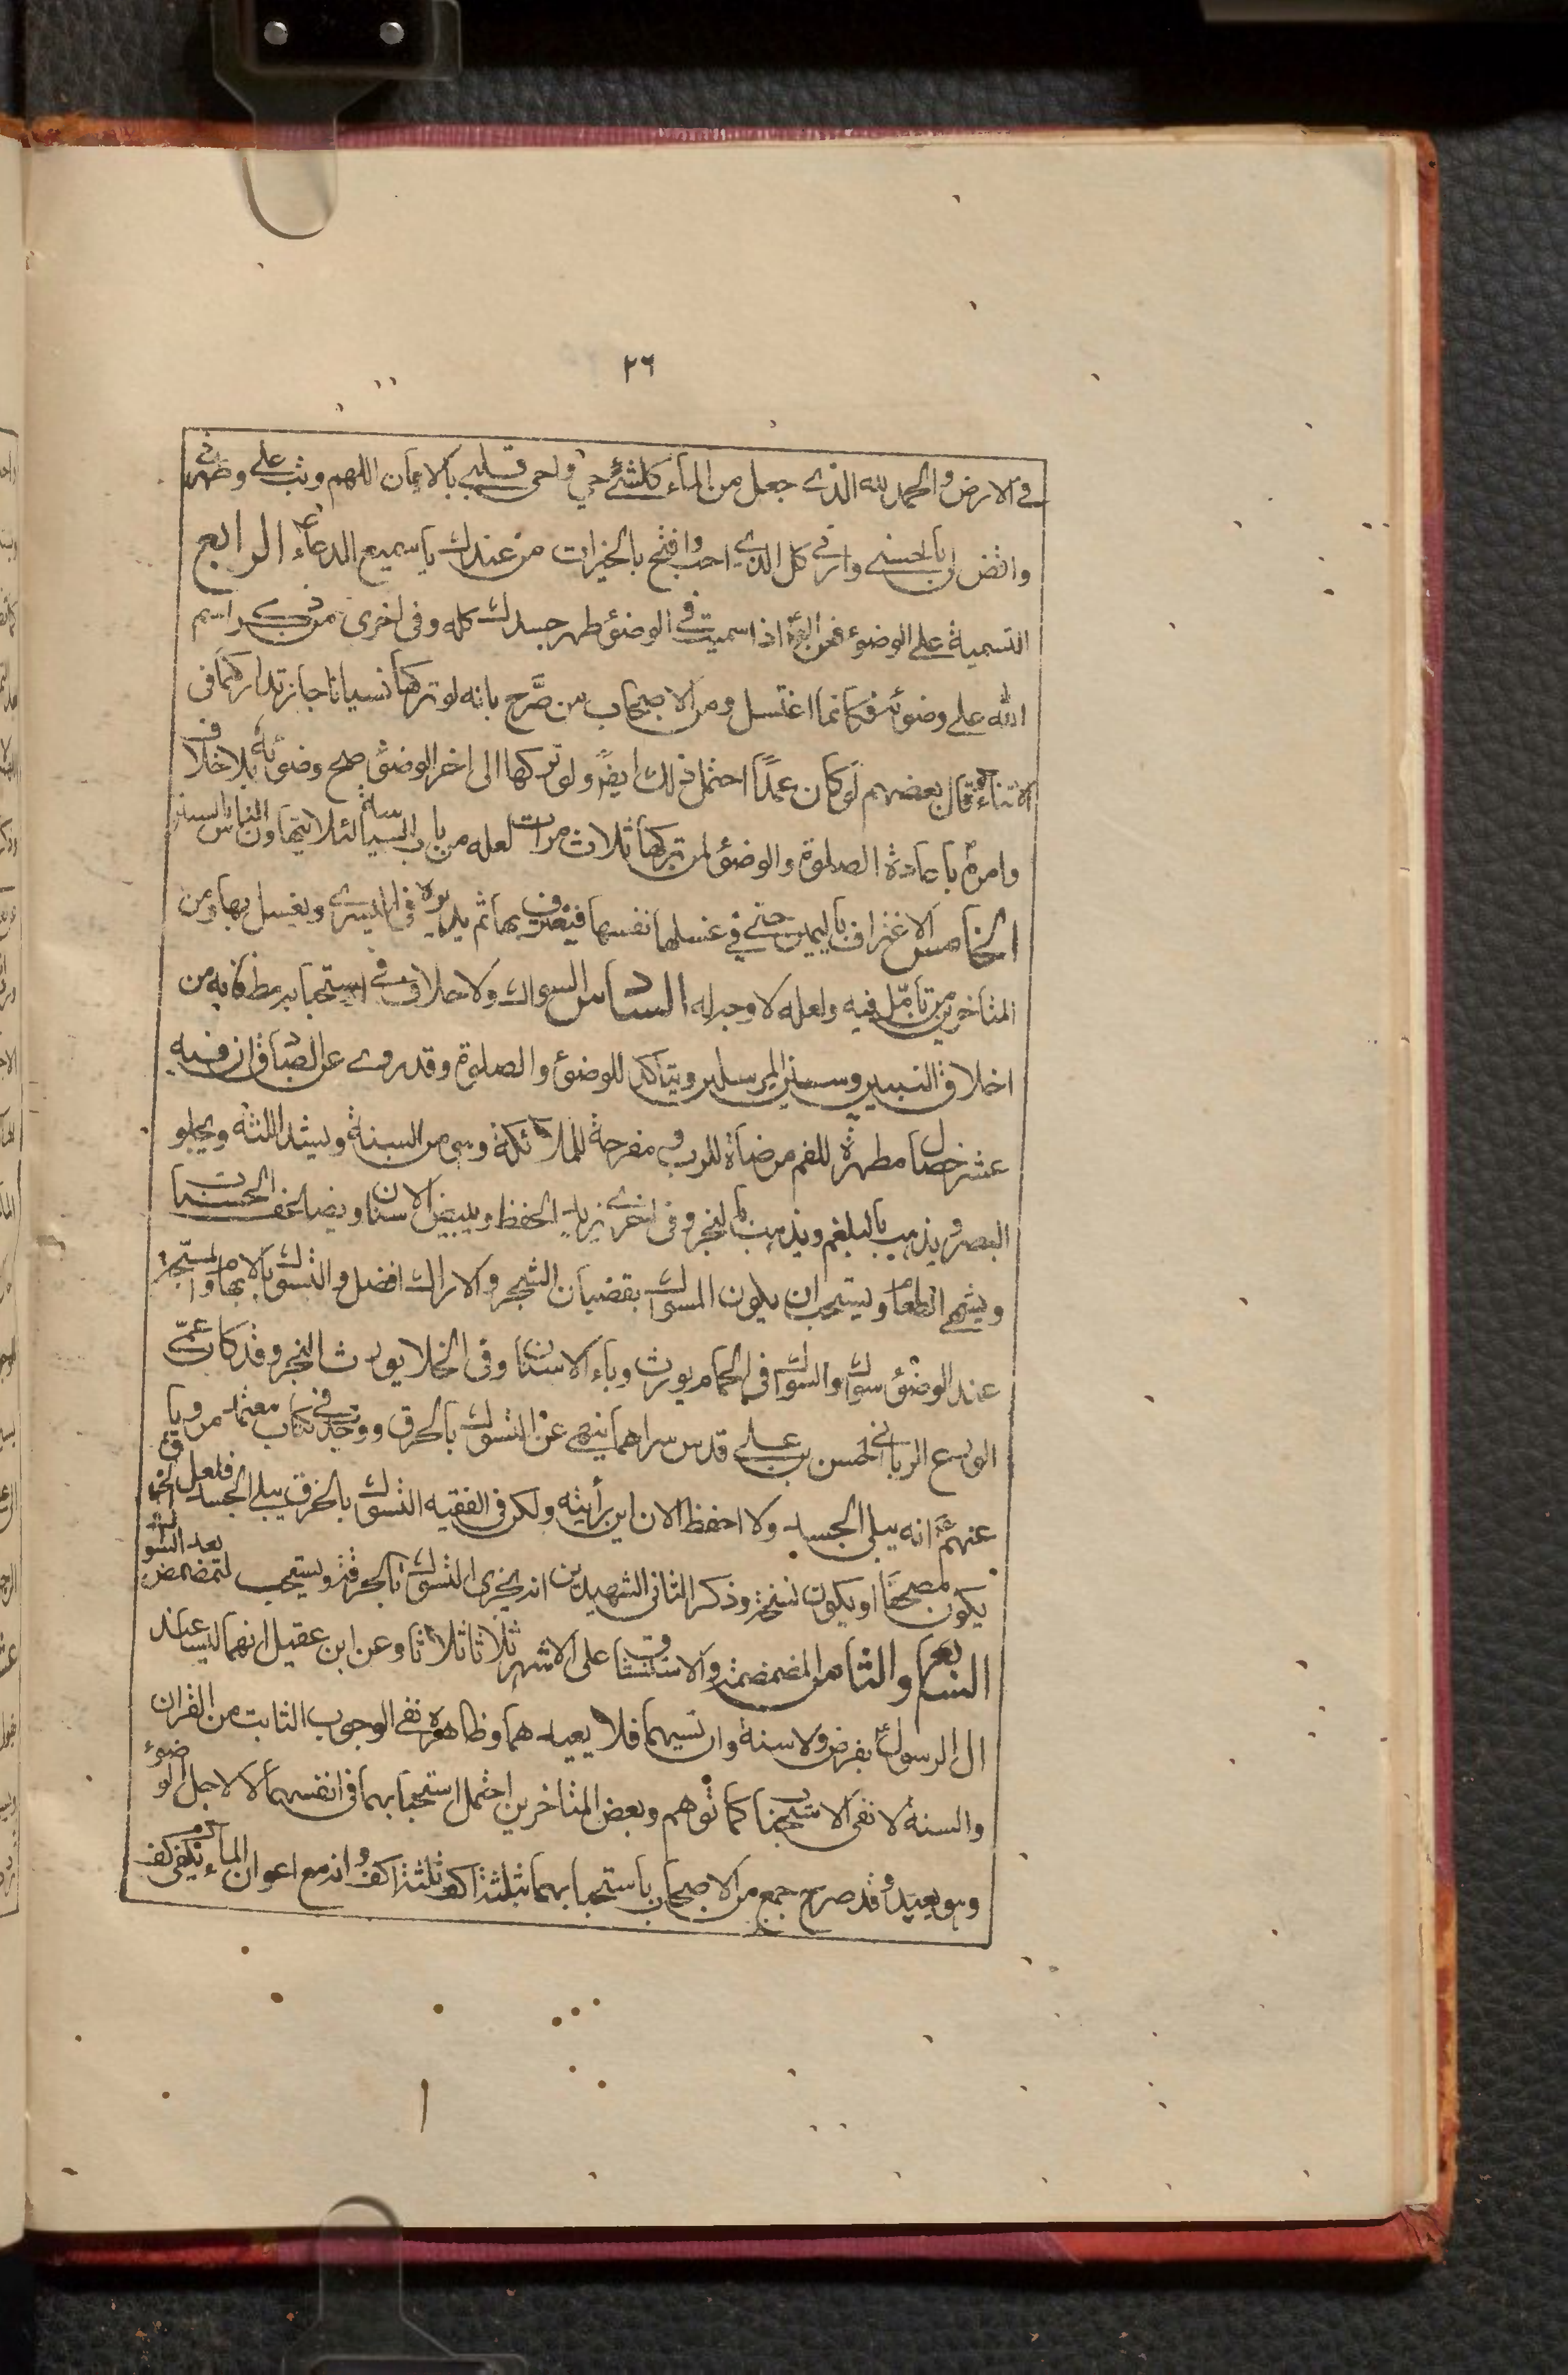 ٢٦
في الارض والحمد لله الذي جعل من المآء كلشئ حي واحمى قلبي بالايمان اللهم وتب علي وطهرني
واقض لي بالحسنى وارني كل الذي احب وافتح بالخيرات من عندك يا سميع الدعاء الرابع
التسمية على الوضوء فمن اذا سميت في الوضوء طهر جسدك كله وفى اخرى من ذكر اسم
الله على وضوئه فكانما اغتسل ومن الاصحاب من صرَّح بانه لو تركها نسيانا جاز تداركها فى
الاثناء وقال بعضهم لو كان عمداً احتمل ذلك ايضً ولو تركها الى اخر الوضوء صح وضوئه بلا خلاف
وامره باعادة الصلوة والوضوء لمن تركها ثلاث مرات لعله من باب السياسة لئلا يتهاون الناس بالسنن
الخامس الاغتراف باليمين حتى في غسلها نفسها فيغترف بها ثم يديره فى اليسرى ويغسل بها ومن
المتاخرين من تامّل فيه ولعله لا وجه له السادس السواك ولا خلاف في استحبابه مطلقا فانه من
اخلاق النبيين وسنن المرسلين ويتاكد للوضوء والصلوة وقد روي عن الصادق ان فيه
عشر خصال مطهرة للفم مرضاة للرب ومفرحة للملائكة وهي من السنة ويشد اللثه ويجلو
البصر ويذهب بالبلغم ويذهب بالبخر وفى اخرى يزيد الحفظ ويبيض الاسنان ويضاعف الحسنات
ويشهي الطعام ويستحب ان يكون المسواك بقضبان الشجر والاراك افضل والتسوك بالابهام والمسبّحة
عند الوضوء سواك والسواك فى الحمام يورث وباء الاسنان وفى الخلا يورث البخر وقد كان عمّي
الورع الرباني الحسن بن علي قدس سراهما ينهى عن التسوك بالخرق ووجد في كتاب معتمد مرويا
عنهم انه يبلى الجسد ولا احفظ الان اين رأيته ولكن فى الفقيه التسوك بالخزف يبلي الجسد فلعل الخرق
يكون مصحّفا او يكون نسخة وذكر الثانى الشهيدين انه يجزى التسوك بالخرقة ويستحب التمضمض بعد السواك
السابع والثامن المضمضة والاستنشاق على الاشهر ثلاثا ثلاثا وعن ابن عقيل انهما ليسا عند
ال الرسول بفرض ولا سنة وان نسيهما فلا يعيد هما وظاهره نفى الوجوب الثابت من القران
والسنة لا نفى الاستحباب كما توهم وبعض المتاخرين احتمل استحبابهما فى انفسهما لا لاجل الوضوء
وهو بعيد وقد صرح جمع من الاصحاب باستحبابهما بثلثة اكف وثلثة اكف وانه مع اعوان المآء يكفى كف